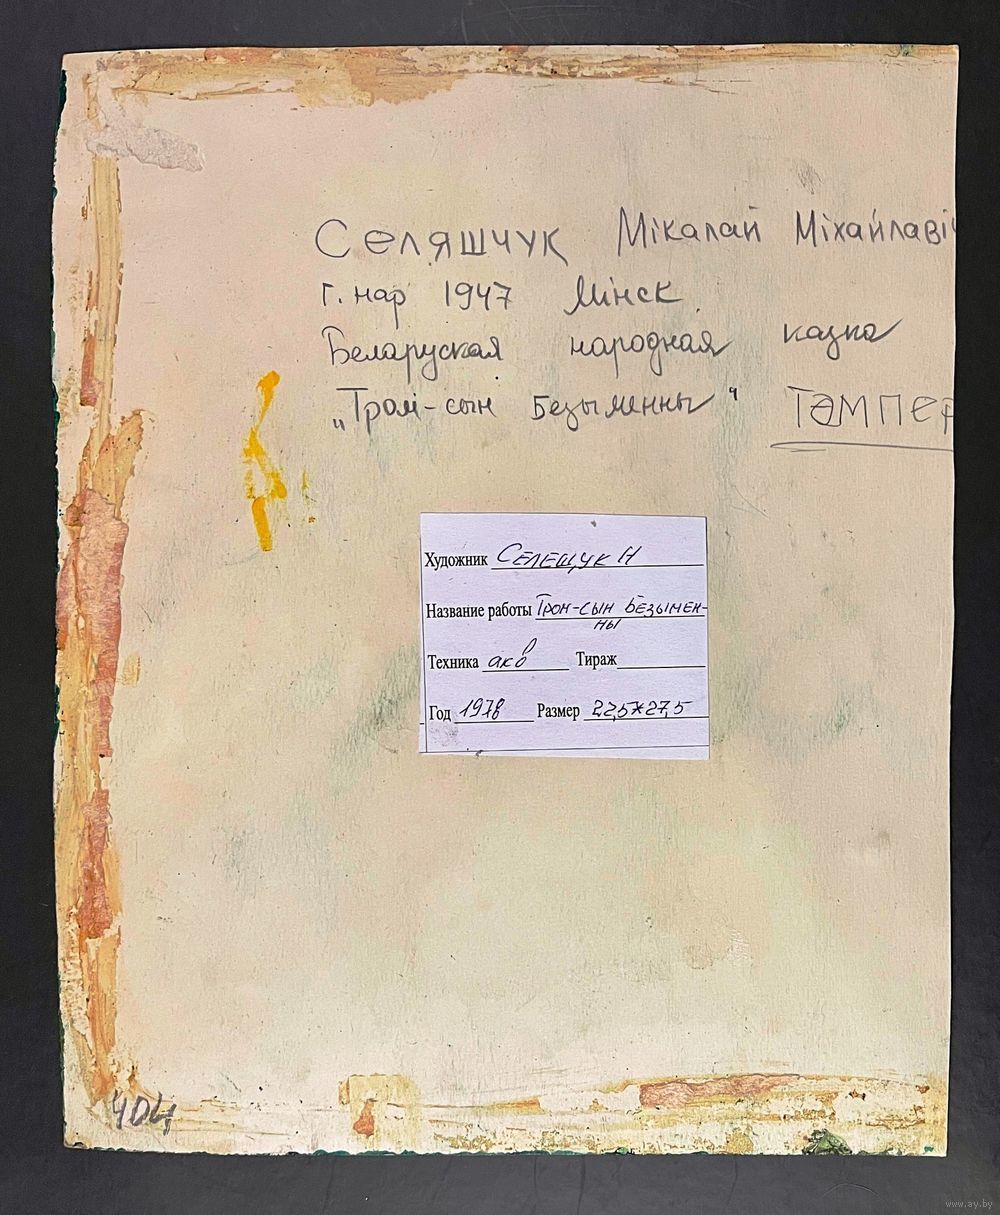 Селяшчук Мікалай Міхайлавіч
г. нар 1947 Мінск
Беларуская народная казка
„Тром-сын Безыменны“ ТЭМПЕР
Художник СЕЛЕЩУК Н
Название работы Тром-сын Безымен-
ны
Техника акв Тираж
Год 1978 Размер 22,5*27,5
404
www.ay.by